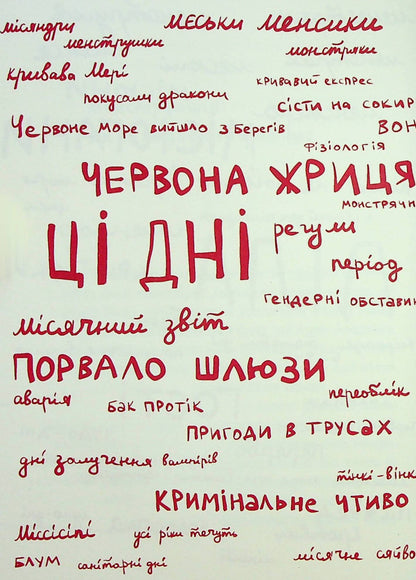 місяндри
меськи менсики
менструшки
монстряки
кривава Мері
кривавий експрес
покусали дракони
сісти на сокир
Червоне море вийшло з берегів
вон
фізіологія
червона жриця
монстрячи
ці дні
регули
період
гендерні обставин
місячний звіт
порвало шлюзи
аварія
бак протік
переоблік
пригоди в трусах
дні залучення вампірів
тінкі-вінк
кримінальне чтиво
Міссісіпі
усі ріки течуть
блум
санітарні дні
місячне сяйво